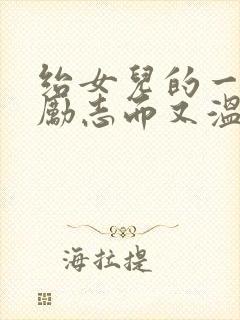 給女兒的一
勵志而又溫
海拉提